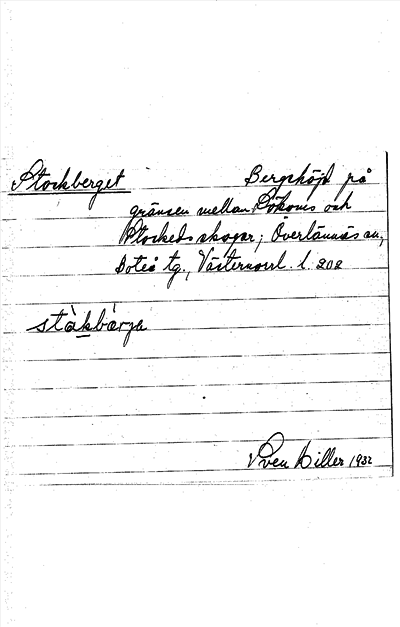 Stockberget Bergshöjd på
gränsen mellan Sökoms och
Stockeds skogar; Överlännäs sn,
Boteå tg., Västernorrl. l. 202
stàkbàrga
Sven Hiller 1932